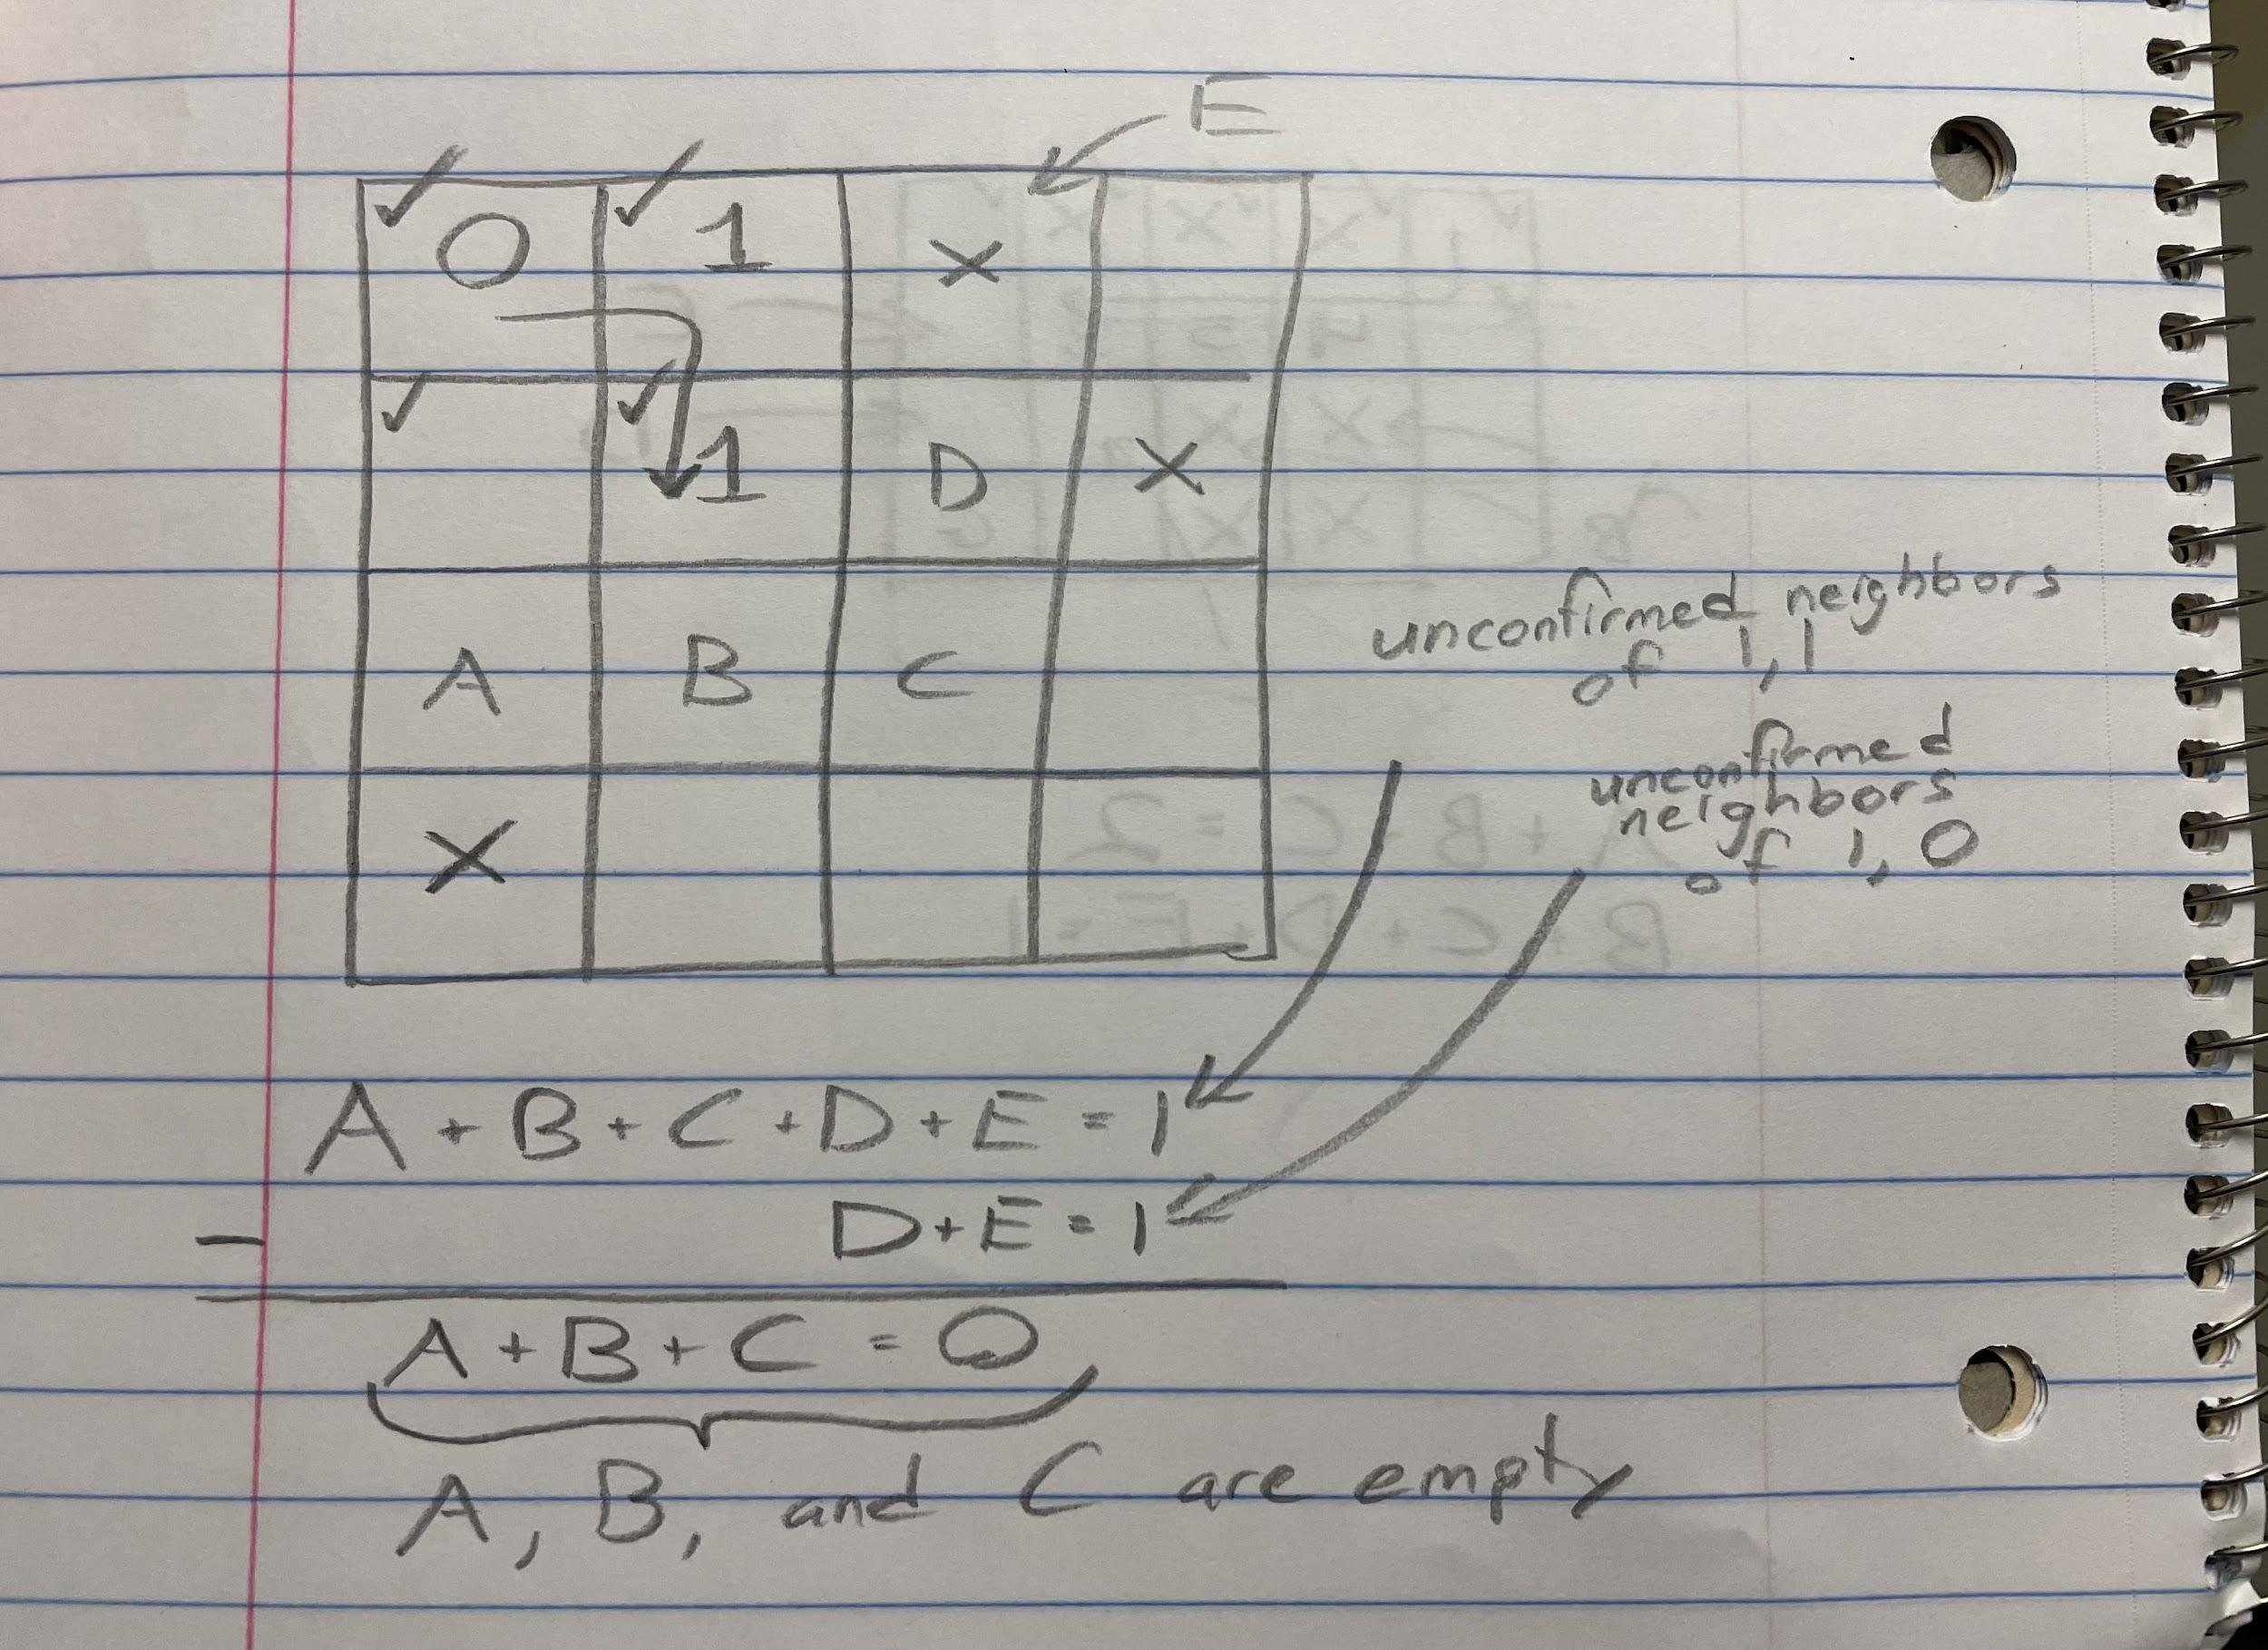 E
✓ 0 ✓ 1 X
✓ ✓ 1 D X
A B C
X
unconfirmed neighbors
of 1,1
unconfirmed
neighbors
of 1,0
A + B + C + D + E = 1
- D + E = 1
A + B + C = 0
A, B, and C are empty